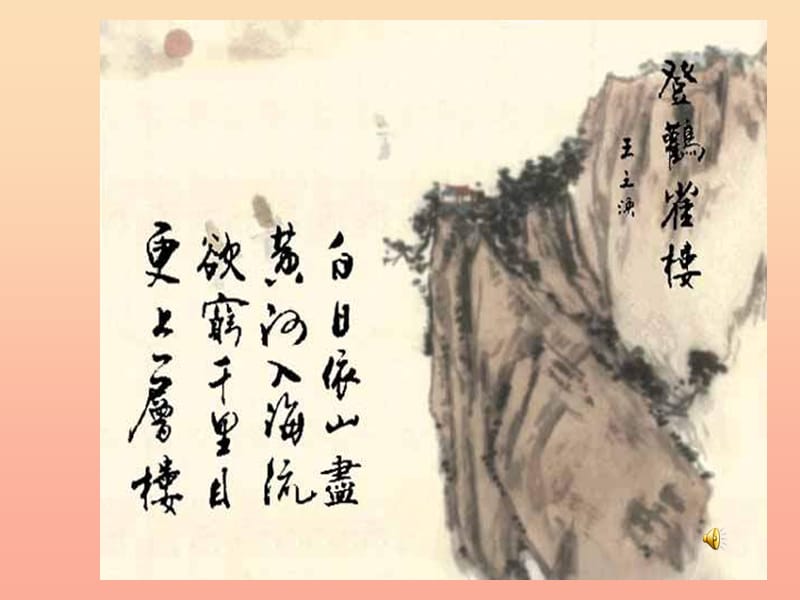 登鸛雀樓
王主渙
白日依山盡
黄河入海流
欲窮千里目
更上一層樓